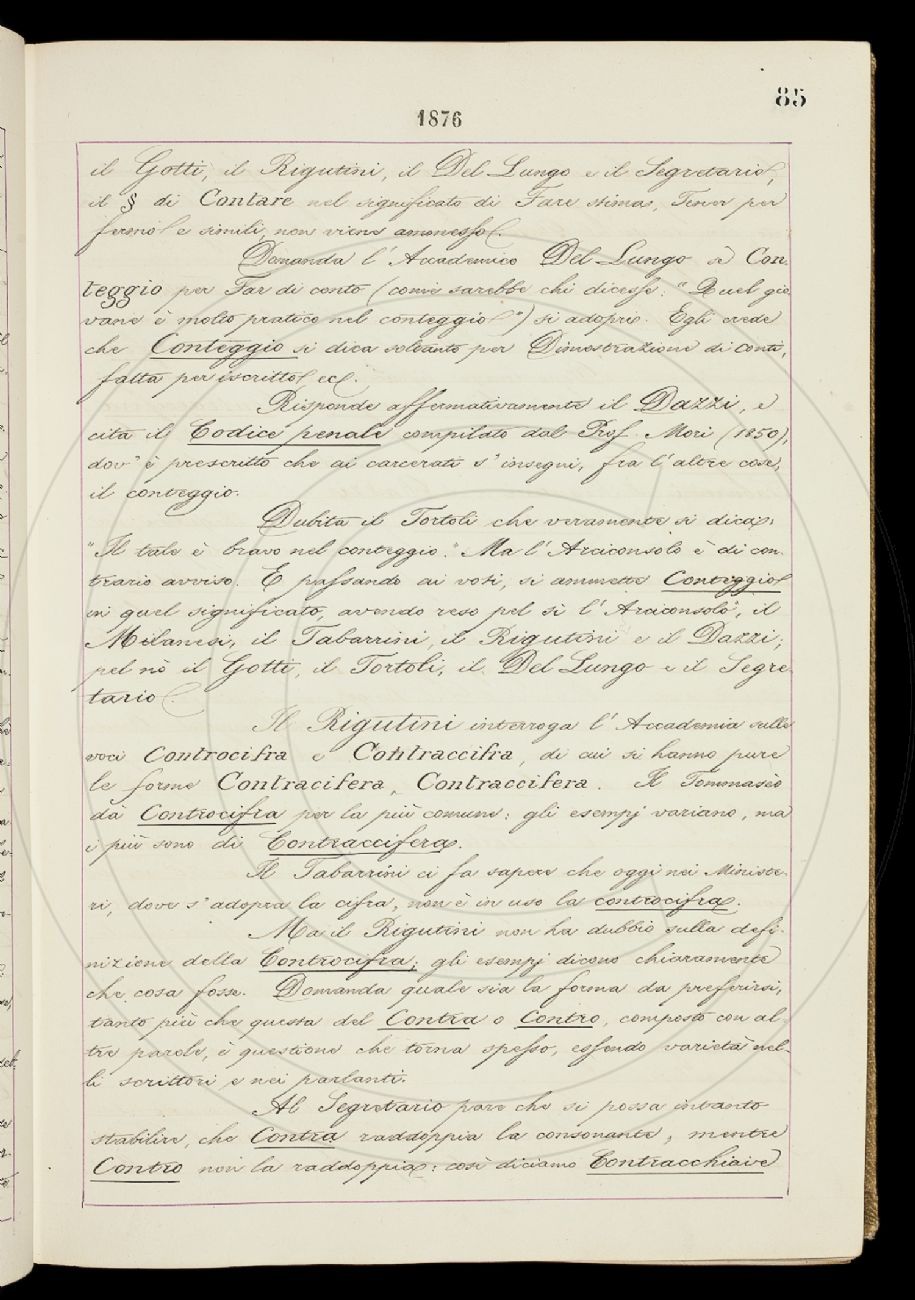 85
1876
il Gotti, il Rigutini, il Del Lungo e il Segretario,
il § di Contare nel significato di Fare stima, Tener per
fermo e simili, non viene ammesso.
Domanda l'Accademico Del Lungo se Con-
teggio per Far di conto (come sarebbe chi dicesse: "Quel gio-
vane è molto pratico nel conteggio") si adopri. Egli crede
che Conteggio si dica soltanto per Dimostrazione di conti,
fatta per iscritto ec.
Risponde affermativamente il Dazzi, e
cita il Codice penale compilato dal Prof. Mori (1850),
dov'è prescritto che ai carcerati s'insegni, fra l'altre cose,
il conteggio.
Dubita il Tortoli che veramente si dica:
"Il tale è bravo nel conteggio." Ma l'Arciconsolo è di con-
trario avviso. E passando ai voti, si ammette Conteggio
in quel significato, avendo reso pel sì l'Arciconsolo, il
Milanesi, il Tabarrini, il Rigutini e il Dazzi;
pel nò il Gotti, il Tortoli, il Del Lungo e il Segre-
tario.
Il Rigutini interroga l'Accademia sulle
voci Controcifra e Contraccifra, di cui si hanno pure
le forme Contracifera, Contraccifera. Il Tommasèo
dà Controcifra per la più comune: gli esempj variano, ma
i più sono di Contraccifera.
Il Tabarrini ci fa sapere che oggi nei Ministe-
ri, dove s'adopra la cifra, non è in uso la controcifra.
Ma il Rigutini non ha dubbio sulla defi-
nizione della Controcifra; gli esempj dicono chiaramente
che cosa fosse. Domanda quale sia la forma da preferirsi,
tanto più che questa del Contra o Contro, composto con al-
tre parole, è questione che torna spesso, essendo varietà nel-
li scrittori e nei parlanti.
Al Segretario pare che si possa intanto
stabilire, che Contra raddoppia la consonante, mentre
Contro non la raddoppia: così diciamo Contracchiave